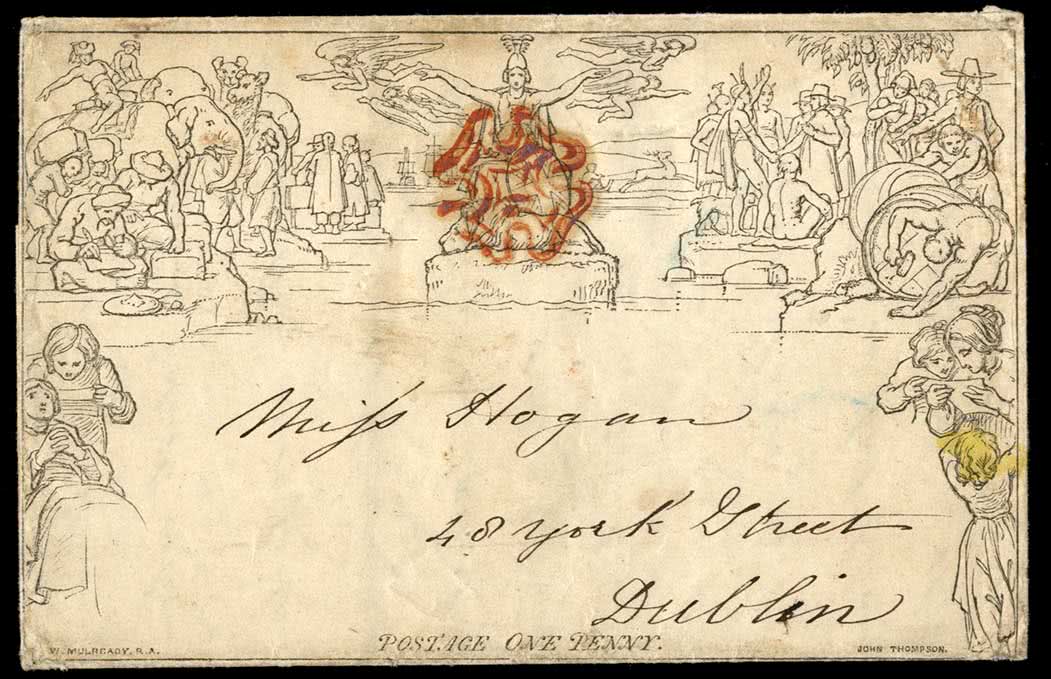 Miss Hogan
48 York Street
Dublin
POSTAGE ONE PENNY.
W. MULREADY, R.A.
JOHN THOMPSON.